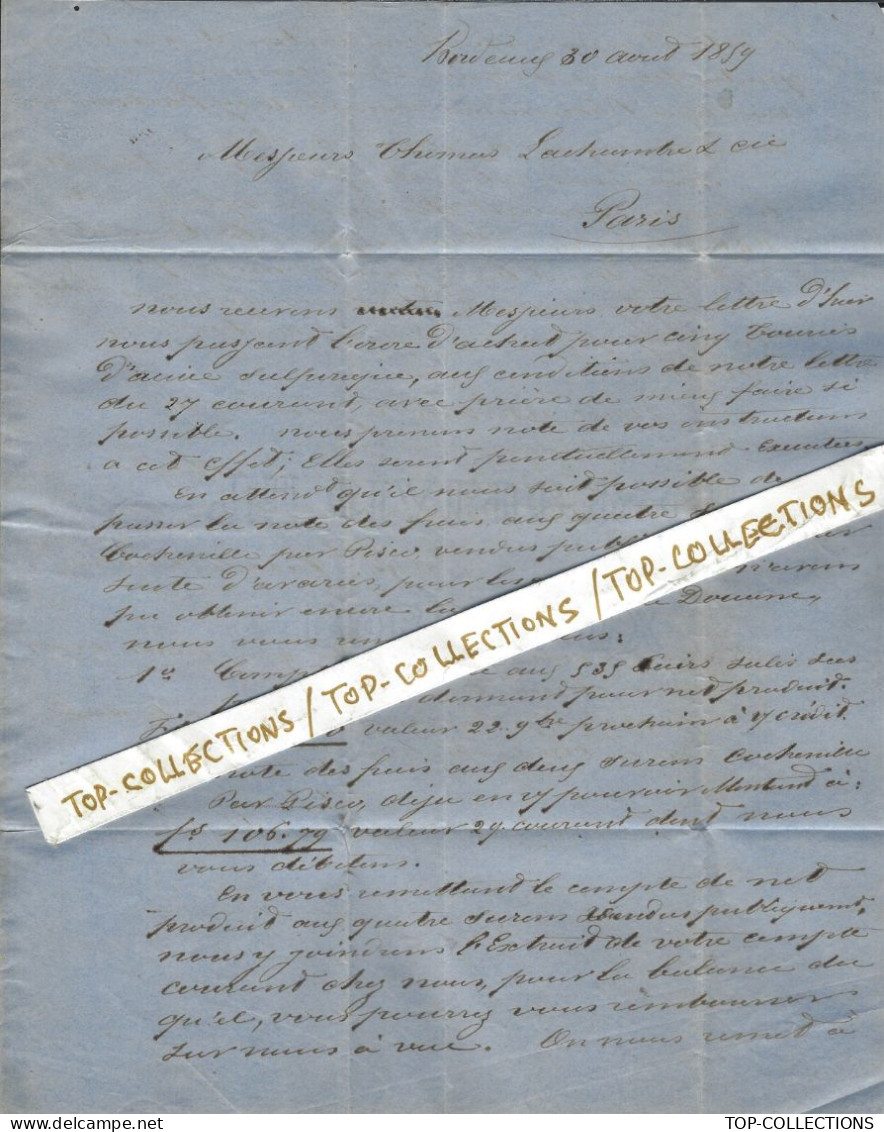 Bordeaux 30 aout 1859
Messieurs Thomas Lachambre & cie
Paris
nous recevons Messieurs votre lettre d'hier
nous passant l'ordre d'achat pour cinq Touries
d'acide sulfurique, aux conditions de notre lettre
du 27 courant, avec prière de mieux faire si
possible. nous prenons note de vos instructions
a cet effet; Elles seront ponctuellement Executées
En attendt qu'il nous soit possible de
passer la note des frais aux quatre
Cochenille par Pisco vendus
suite d'avaries, pour n'avons
pu obtenir encore la Douane,
nous vous
1o aux 535 Cuirs salés secs
donnant pour net produit.
valeur 22. 9bre prochain à v/ crédit.
note des frais aux deux surons cochenille
Par Pisco, déja en v/ pouvoir Montant à:
fs 106.79 valeur 29. courant dont nous
vous débitons.
En vous remettant le compte de net
produit aux quatre surons vendus publiquemt.
nous y joindrons l'Extrait de votre compte
courant chez nous, pour la balance du
qu'il, vous pourrez vous rembourser
sur nous à vue. On nous remet à
TOP-COLLECTIONS / TOP-COLLECTIONS / TOP-COLLECTIONS
TOP-COLLECTIONS